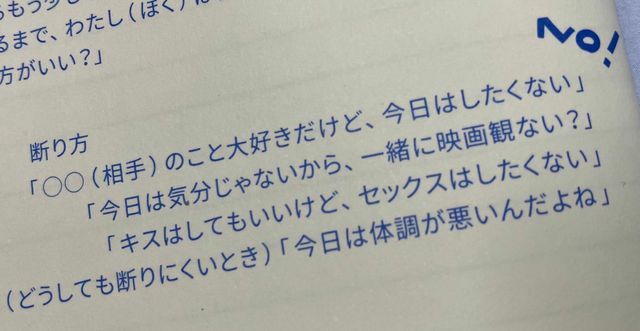 もう少
るまで、わたし(ぼく)は
方がいい?」
No!
断り方
「○○(相手)のこと大好きだけど、今日はしたくない」
「今日は気分じゃないから、一緒に映画観ない?」
「キスはしてもいいけど、セックスはしたくない」
(どうしても断りにくいとき)「今日は体調が悪いんだよね」